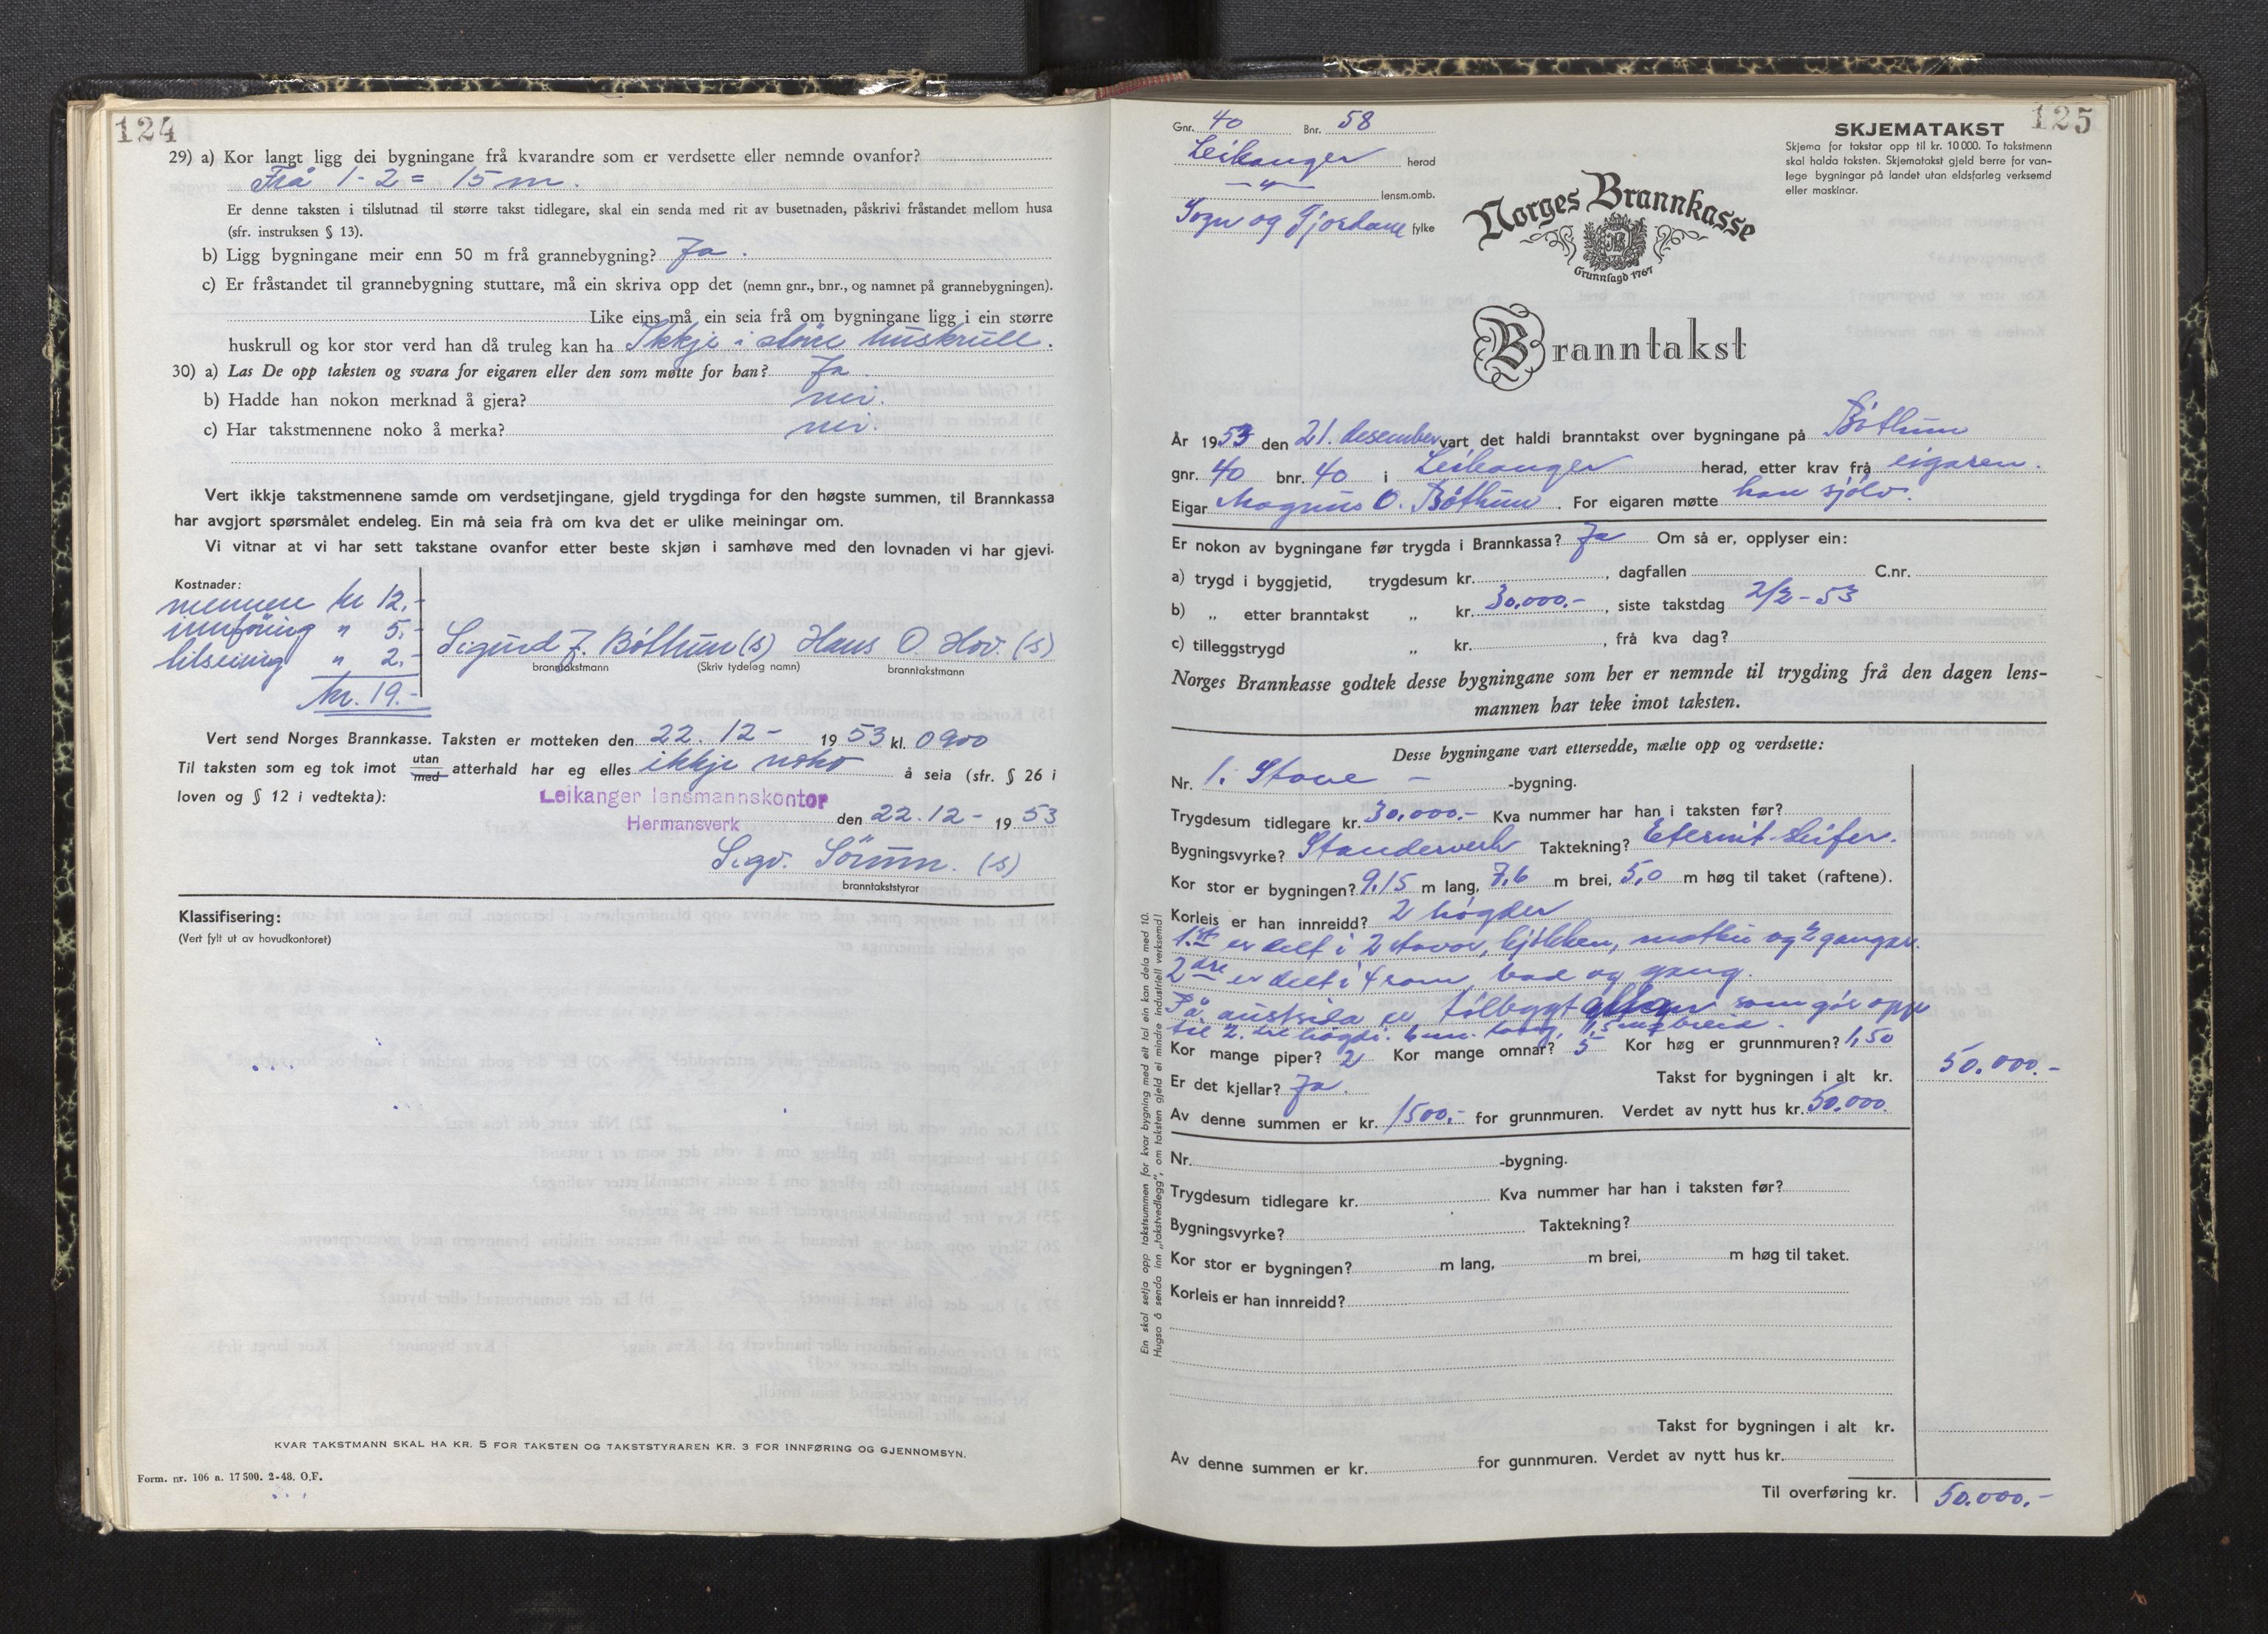 124
29) a) Kor langt ligg dei bygningane frå kvarandre som er verdsette eller nemnde ovanfor?
Frå 1-2 = 15 m.
Er denne taksten i tilslutnad til større takst tidlegare, skal ein senda med rit av busetnaden, påskrivi fråstandet mellom husa
(sfr. instruksen § 13).
b) Ligg bygningane meir enn 50 m frå grannebygning? Ja.
c) Er fråstandet til grannebygning stuttare, må ein skriva opp det (nemn gnr., bnr., og namnet på grannebygningen).
Like eins må ein seia frå om bygningane ligg i ein større
huskrull og kor stor verd han då truleg kan ha Ikkje i större huskrull.
30) a) Las De opp taksten og svara for eigaren eller den som møtte for han? Ja.
b) Hadde han nokon merknad å gjera? nei.
c) Har takstmennene noko å merka? nei.
Vert ikkje takstmennene samde om verdsetjingane, gjeld trygdinga for den høgste summen, til Brannkassa
har avgjort spørsmålet endeleg. Ein må seia frå om kva det er ulike meiningar om.
Vi vitnar at vi har sett takstane ovanfor etter beste skjøn i samhøve med den lovnaden vi har gjevi.
Kostnader:
mennene kr 12.-
innföring " 5.-
tilseing " 2.-
kr. 19.-
Sigurd J. Bóthun (s) Hans O. Hov. (s)
branntakstmann (Skriv tydeleg namn) branntakstmann
Vert send Norges Brannkasse. Taksten er motteken den 22. 12 - 1953 kl. 0900
Til taksten som eg tok imot utan/med atterhald har eg elles ikkje noko å seia (sfr. § 26 i
loven og § 12 i vedtekta):
Leikanger lensmannskontor
Hermansverk den 22.12 - 1953
Sigv. Sörum. (s)
branntakststyrar
Klassifisering:
(Vert fylt ut av hovudkontoret)
KVAR TAKSTMANN SKAL HA KR. 5 FOR TAKSTEN OG TAKSTSTYRAREN KR. 3 FOR INNFØRING OG GJENNOMSYN.
Form. nr. 106 a. 17 500. 2-48. O.F.
125
Gnr. 40 Bnr. 58
Leikanger herad
— " — lensm.omb.
Sogn og Fjordane fylke
SKJEMATAKST
Skjema for takstar opp til kr. 10 000. To takstmenn
skal halda taksten. Skjematakst gjeld berre for van-
lege bygningar på landet utan eldsfarleg verksemd
eller maskinar.
Norges Brannkasse
Grunnlagd 1767
Branntakst
År 1953 den 21. desember vart det haldi branntakst over bygningane på Bóthun
gnr. 40 bnr. 40 i Leikanger herad, etter krav frå eigaren.
Eigar Magnus O. Bóthun. For eigaren møtte han sjölv.
Er nokon av bygningane før trygda i Brannkassa? Ja Om så er, opplyser ein:
a) trygd i byggjetid, trygdesum kr. , dagfallen C.nr.
b) „ etter branntakst „ kr. 30.000.-, siste takstdag 2/2-53
c) tilleggstrygd „ kr. , frå kva dag?
Norges Brannkasse godtek desse bygningane som her er nemnde til trygding frå den dagen lens-
mannen har teke imot taksten.
Desse bygningane vart ettersedde, mælte opp og verdsette:
Nr. 1. Stove - -bygning.
Trygdesum tidlegare kr. 30,000.- Kva nummer har han i taksten før?
Bygningsvyrke? Standerverk Taktekning? Eternit-Skifer.
Kor stor er bygningen? 9,15 m lang, 7,6 m brei, 5,0 m høg til taket (raftene).
Korleis er han innreidd? 2 högder
1.ste er delt i 2 stover, kjökken, matbu og 2 gangar.
2dre er delt i 4 rom, bad og gang.
På austsida er tilbygt altan som går opp
til 2. dre högdi. 6 m. lang, 1,5 m breid.
Kor mange piper? 2 Kor mange omnar? 5 Kor høg er grunnmuren? 1,50
Er det kjellar? Ja. Takst for bygningen i alt kr. 50.000.-
Av denne summen er kr. 1500.- for grunnmuren. Verdet av nytt hus kr. 50.000.
Nr. -bygning.
Trygdesum tidlegare kr. Kva nummer har han i taksten før?
Bygningsvyrke? Taktekning?
Kor stor er bygningen? m lang, m brei, m høg til taket.
Korleis er han innreidd?
Takst for bygningen i alt kr.
Av denne summen er kr. for gunnmuren. Verdet av nytt hus kr.
Til overføring kr. 50.000.-
Ein skal setja opp takstsummen for kvar bygning med eit tal ein kan dela med 10.
Hugsa å senda inn „takstvedlegg", om taksten gjeld ei mindre industriell verksemd!